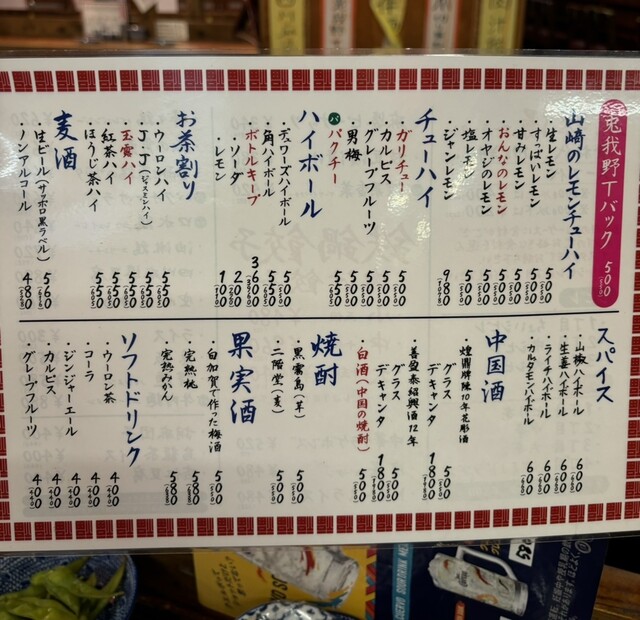 兎我野Tバック 500(550)
山崎のレモンチューハイ
・生レモン 500(550)
・すっぱいレモン 500(550)
・甘みレモン 500(550)
・おんなのレモン 500(550)
・オヤジのレモン 500(550)
・塩レモン 500(550)
・ジャンレモン 980(1080)
チューハイ
・ガリチュー 500(550)
・カルピス 500(550)
・グレープフルーツ 500(550)
・男梅 500(550)
パ パクチー 550(605)
ハイボール
・デュワーズハイボール 500(550)
・角ハイボール 550(605)
・ボトルキープ 3600(3960)
・ソーダ 200(220)
・レモン 100(110)
お茶割り
・ウーロンハイ 550(605)
・J・J(ジャスミンハイ) 550(605)
・玉露ハイ 550(605)
・紅茶ハイ 550(605)
・ほうじ茶ハイ 550(605)
麦酒
・生ビール(サッポロ黒ラベル) 560(616)
・ノンアルコール 480(528)
スパイス
・山椒ハイボール 600(660)
・生姜ハイボール 600(660)
・ライチハイボール 600(660)
・カルダモンハイボール 600(660)
中国酒
・煌鼎牌陳10年花彫酒
グラス 500(550)
デキャンタ 1800(1980)
・善盈泰紹興酒12年
グラス 500(550)
デキャンタ 1800(1980)
・白酒(中国の焼酎) 500(550)
焼酎
・黒霧島(芋) 500(550)
・二階堂(麦) 500(550)
果実酒
・白加賀で作った梅酒 580
・完熟桃 580
・完熟みかん 580
ソフトドリンク
・ウーロン茶 400(440)
・コーラ 400(440)
・ジンジャーエール 400(440)
・カルピス 400(440)
・グレープフルーツ 400(440)